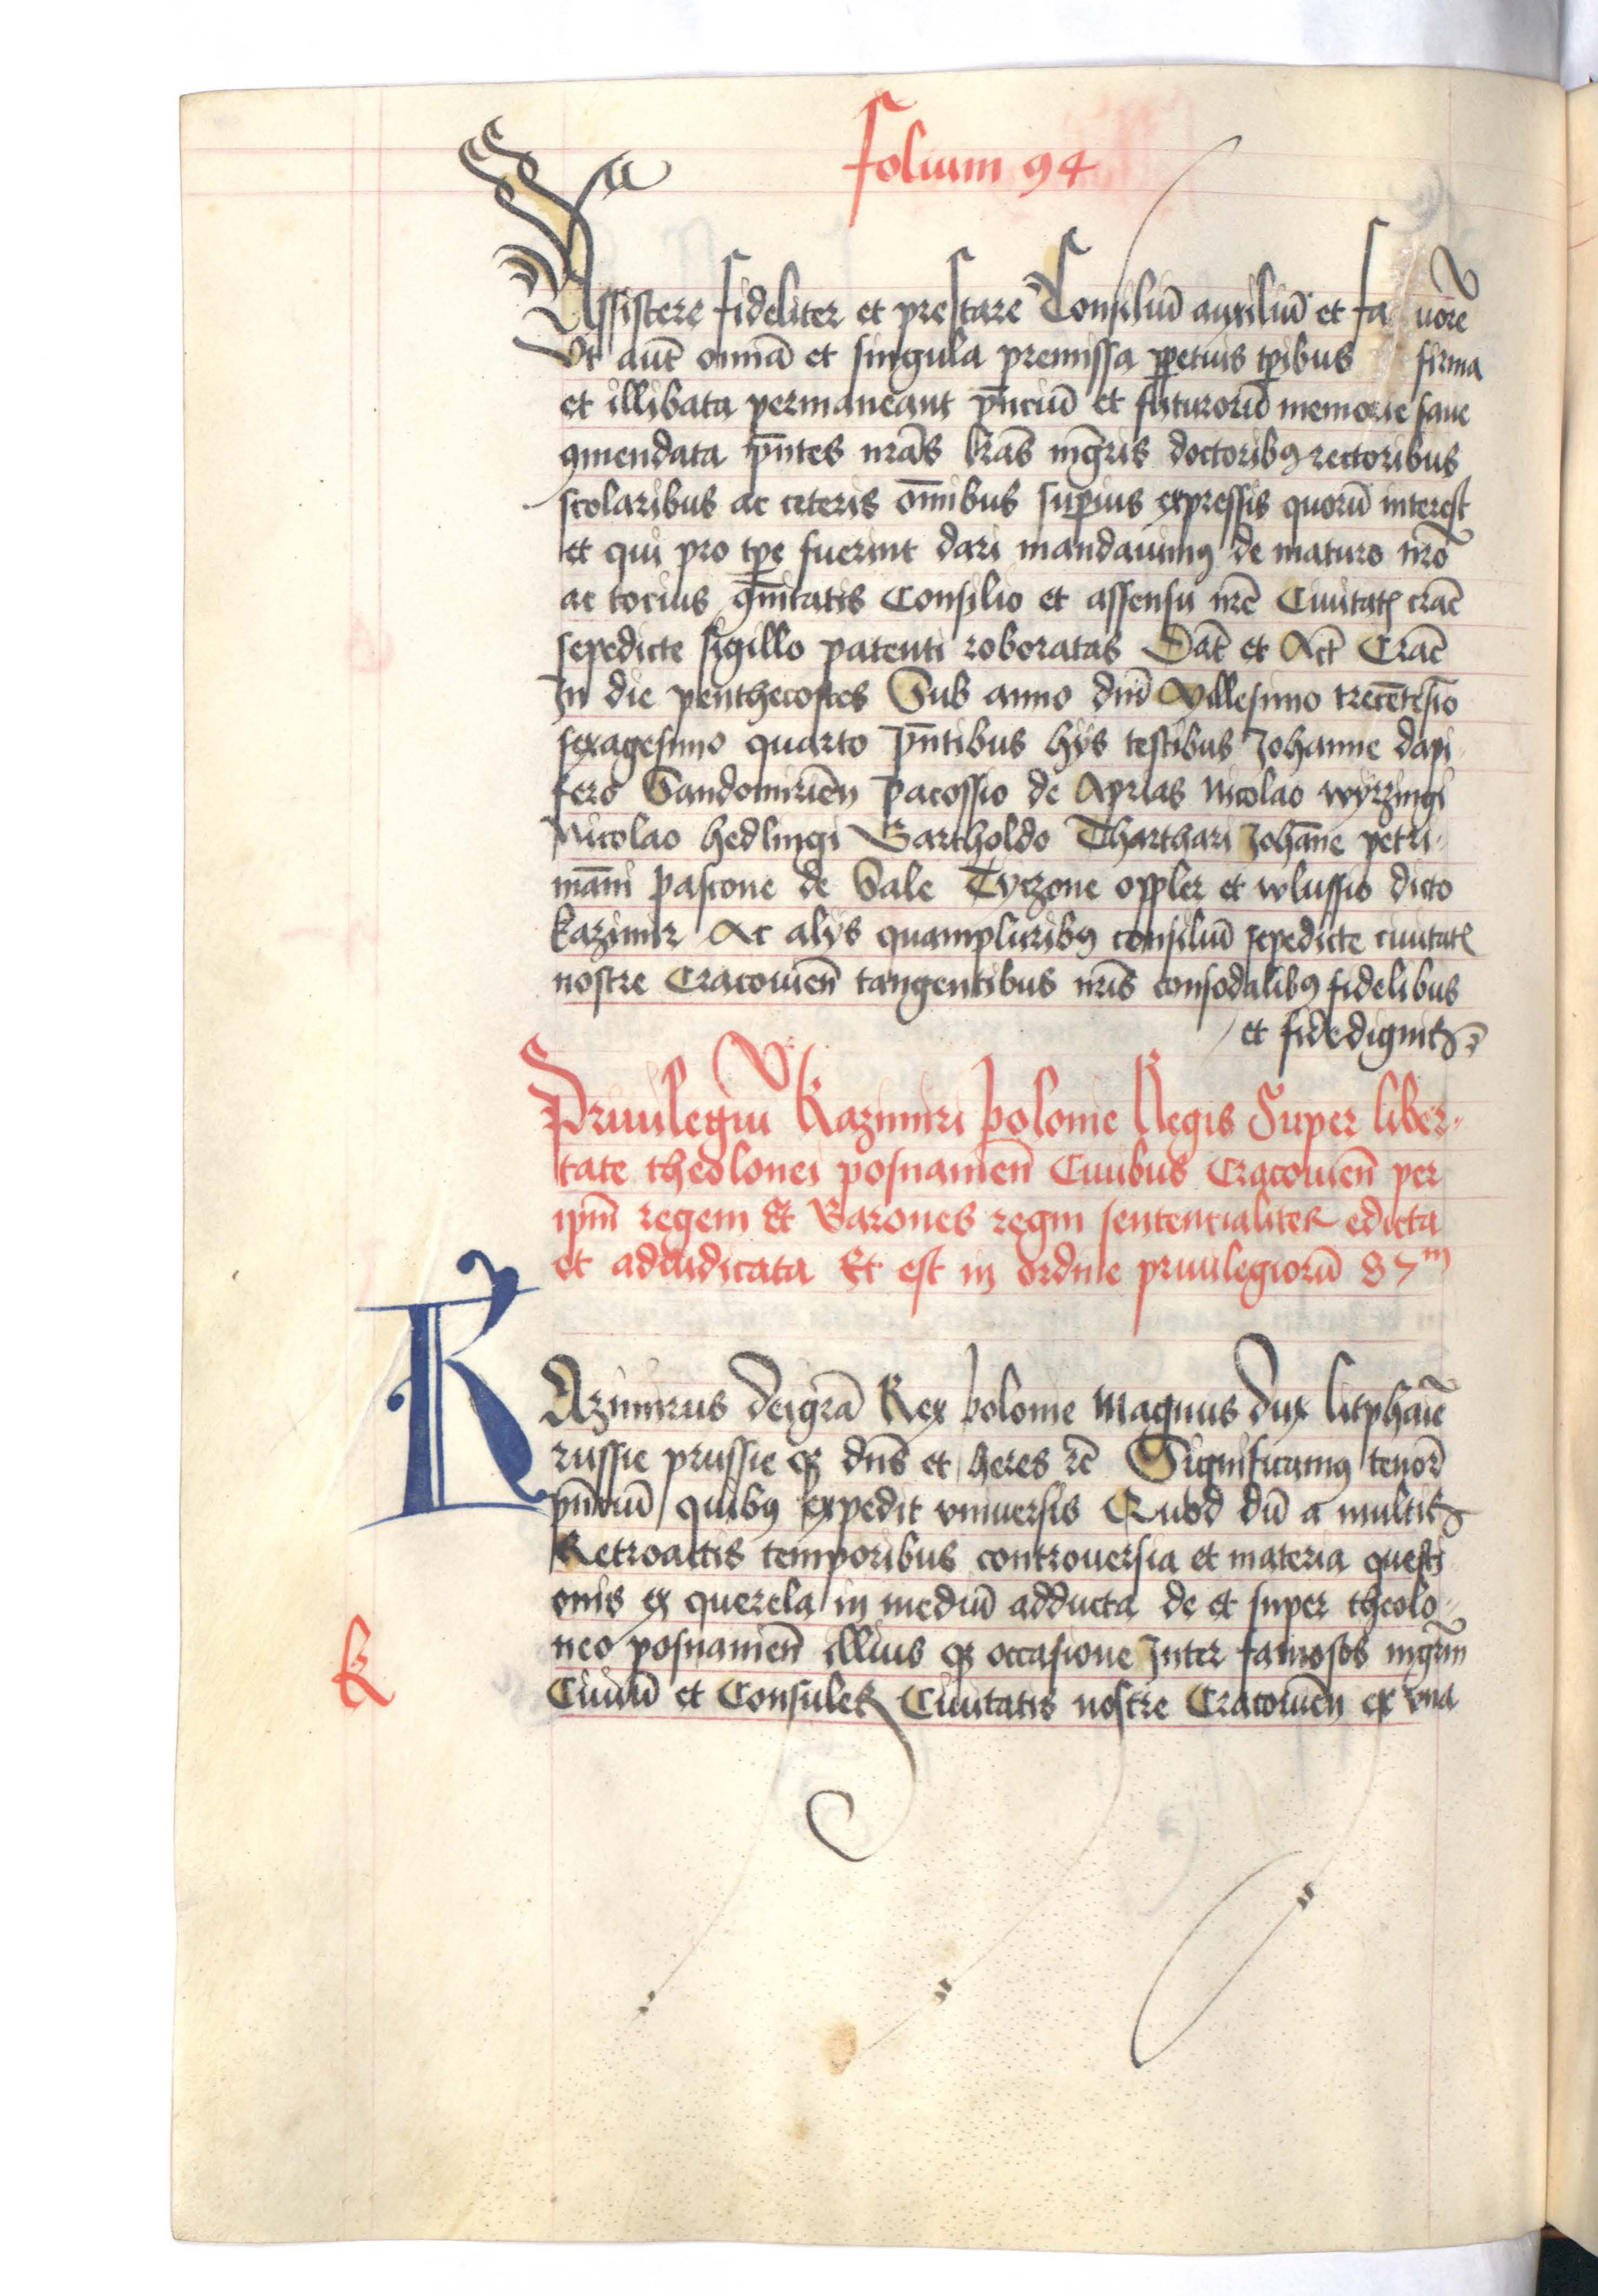 folium 94
Assistere fideliter et prestare Consiliū auxiliū et fa uorē
Vt aut̄ omīa et singula premissa ꝑpetuis tꝑibus firma
et illibata permaneant pn̄ciū et futurorū memorie
ꝯmendata pn̄tes nrās lrās mgr̄is doctoribꝰ rectoribus
scolaribus ac ceteris om̄ibus suꝑius expressis quorū interest
et qui pro tꝑe fuerint dari mandauimꝰ de maturo nr̄o
ac tocius ꝯmītatis Consilio et assensu nr̄e Ciuitatꝭ crac̄
sepedicte sigillo patenti roboratas Dat̄ et Act̄ Crac̄
In die penthecostes Sub anno dnī Millesimo trecētesīo
sexagesimo quarto pn̄tibus hijs testibus Johanne dapi
fero Sandomirien̄ Pacossio de Nicolao wyrzingi
Nicolao hedlingi Bartholdo Tharthari Johāne petri
mānī pascone de Sale Tyczone oppler et wlussio dicto
kazimir Ac alijs quampluribꝰ consiliū sepedicte ciuitatꝭ
nostre Cracouien̄ tangentibus nr̄is consodalibꝰ fidelibus
et fidedignis
Priuilegiu Kazimiri polonie Regis Super liber
tate theolonei posnanien̄ Ciuibus Cracouien̄ per
ip̄m regem Et Barones regni sententialiter edicta
et adiudicata Et est in ordine priuilegiorū 87m
K
Azimirus deigrā Rex polonie Magnus dux litphaīe
russie prussie qꝫ dn̄s et heres rc̄ Significamꝰ tenōr
pn̄ciū quibꝰ expedit vniuersis Quod dū a multis
Retroactis temporibus controuersia et materia questi
onis ex querela in mediū adducta de et super theolo
neo posnanien̄ illius qꝫ occasione Inter famosos mgr̄m
k
Ciuiū et Consules Ciuitatis nostre Cracouien̄ ex vna